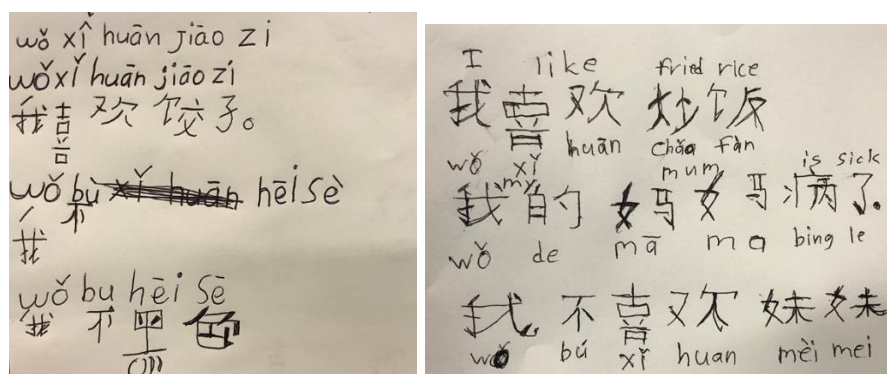 wǒ xǐ huān jiāo zi
wǒ xǐ huān jiāo zí
我喜欢饺子。
wǒ bù xǐ huān hēi sè
不
我
wǒ bu hēi sē
我 不 黑 色
I like fried rice
我喜欢炒饭
wǒ xǐ huān chǎo fàn
my mum is sick
我的妈妈病了。
wǒ de mā ma bing le
我不喜欢妹妹
wǒ bú xǐ huan mèi mei